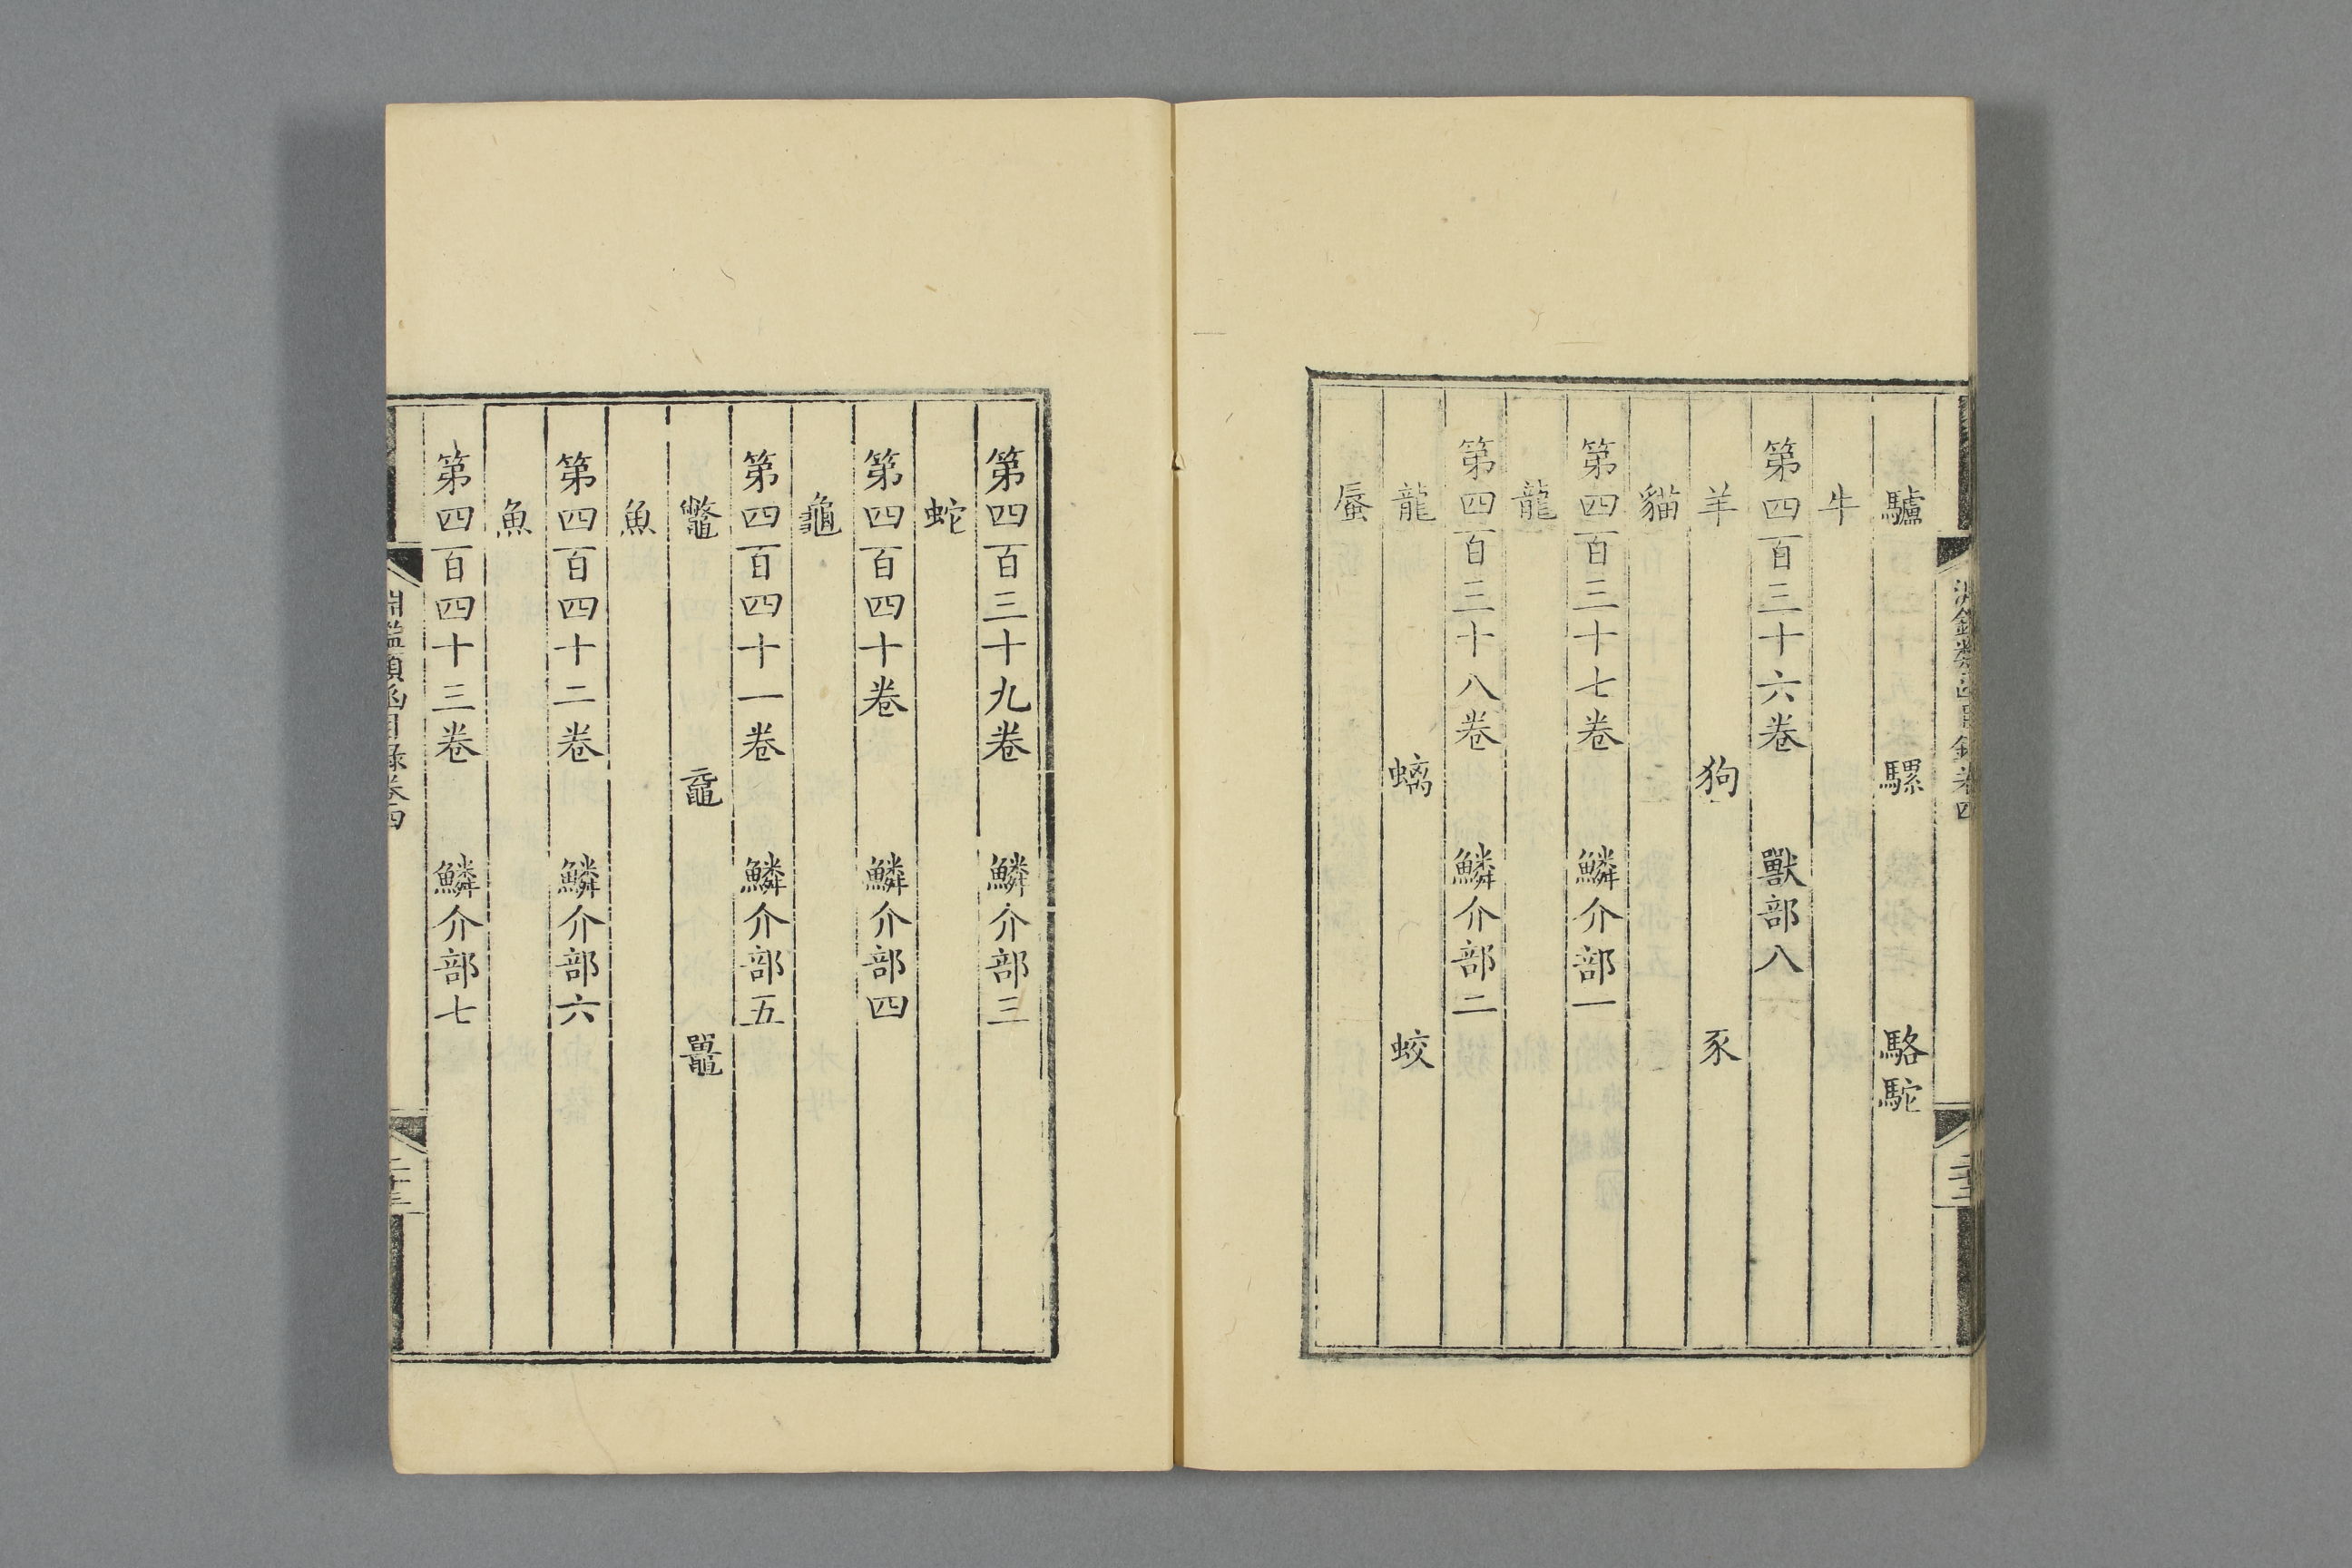 驢 騾 駱駝
牛
第四百三十六卷 獸部八
羊 狗 豕
貓
第四百三十七卷 鱗介部一
龍
第四百三十八卷 鱗介部二
龍 螭 蛟
蜃
第四百三十九卷 鱗介部三
蛇
第四百四十卷 鱗介部四
龜
第四百四十一卷 鱗介部五
鼈 黿 鼉
魚
第四百四十二卷 鱗介部六
魚
第四百四十三卷 鱗介部七
淵鑑類函目錄卷四